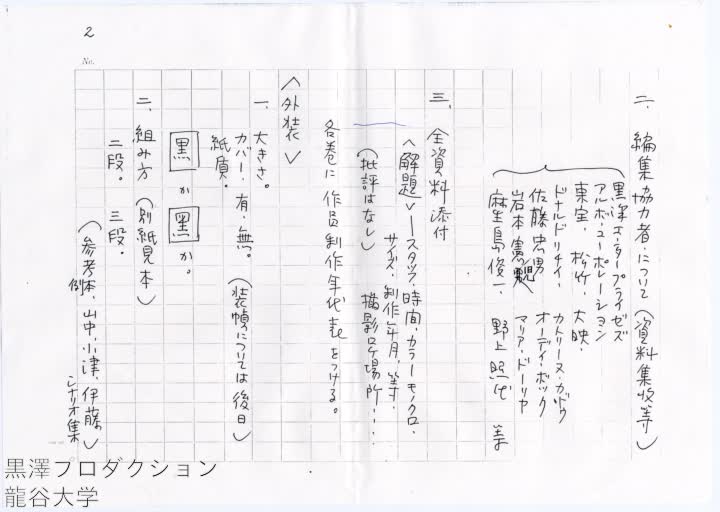 2
No.
二、編集協力者について（資料集収等）
黒澤エンタープライゼズ
アルボ・コーポレーション
東宝、松竹、大映、
ドナルドリチイ、カトリーヌ・カドゥ
佐藤忠男 オーディ・ボック
岩本憲児 マリア・ドーリヤ
麻生島俊一、野上照代 等
三、全資料添付
＜解題＞―スタッフ、時間、カラーモノクロ、
サイズ、制作年月、等、
（批評はなし）撮影ロケ場所・・・・
各巻に作品制作年代表をつける。
＜外装＞
一、大きさ。
カバー・有・無。（装幀については後日）
紙質。
黒か黑か。
二、組み方（別紙見本）
二段。三段。
（参考例本、山中、小津、伊藤）
シナリオ集
黒澤プロダクション
龍谷大学